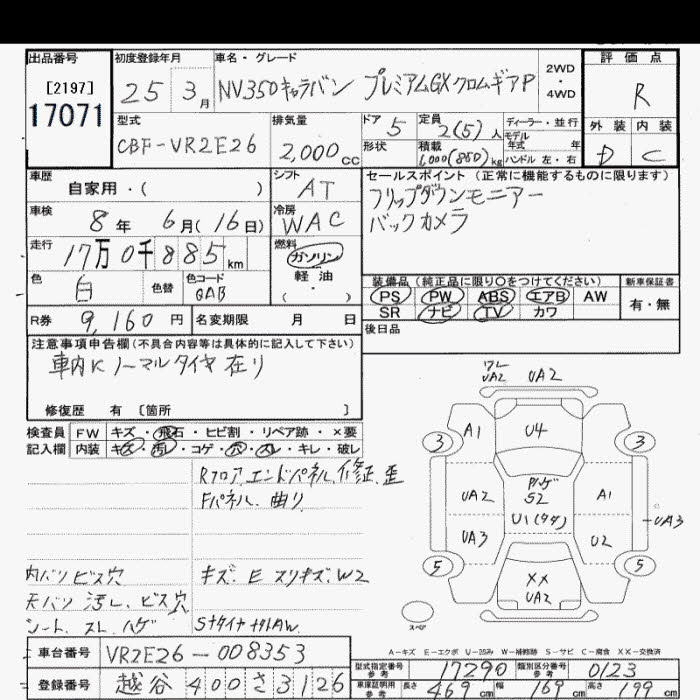 出品番号
[2197]
17071
初度登録年月
25 3月
車名・グレード
NV350キャラバン プレミアムGXクロムギアP
2WD
・
4WD
評価点
R
外装 内装
D C
型式
CBF-VR2E26
排気量
2,000cc
ドア
5
形状
定員
2(5)人
積載
1,000(850)kg
ディーラー・並行
モデル
年式 年
ハンドル 左・右
車歴
自家用・( )
シフト
AT
車検
8年 6月(16日)
冷房
WAC
走行
17万0千885km
燃料
ガソリン
軽油
( ・ )
色
白
色替
色コード
QAB
R券 9,160円
名変期限 月 日
セールスポイント(正常に機能するものに限ります)
フリップダウンモニアー
バックカメラ
装備品(純正品に限り○をつけてください)
PS PW ABS エアB AW
SR ナビ TV カワ
新車保証書
有・無
後日品
注意事項申告欄(不具合内容等は具体的に記入して下さい)
車内Kノーマルタイヤ在り
修復歴 有 〔箇所 〕
検査員 FW キズ・飛石・ヒビ割・リペア跡・×要
記入欄 内装 キズ・汚・コゲ・穴・スレ・キレ・破レ
Rフロア、エンドパネル、修正、歪
Fパネル、曲り
内バリビス穴
キズ、E スリキズ、W2
天バリ汚レ、ビス穴
シート、スレ、ハゲ
SナタイヤナットAW.
ワレ
UA2 UA2
A1 U4
3 3
ハゲ
S2
UA2 A1
U1(タタ)
UA3 U2
UA3
5 5
XX
UA2
スペア
A-キズ E-エクボ U-凹み W-補修跡 S-サビ C-腐食 XX-交換済
車台番号 VR2E26-008353
登録番号 越谷 400 さ 3126
型式指定番号 参考 17290
類別区分番号 参考 0123
車庫証明用 参考 長さ 469cm 幅 169cm 高さ 199cm